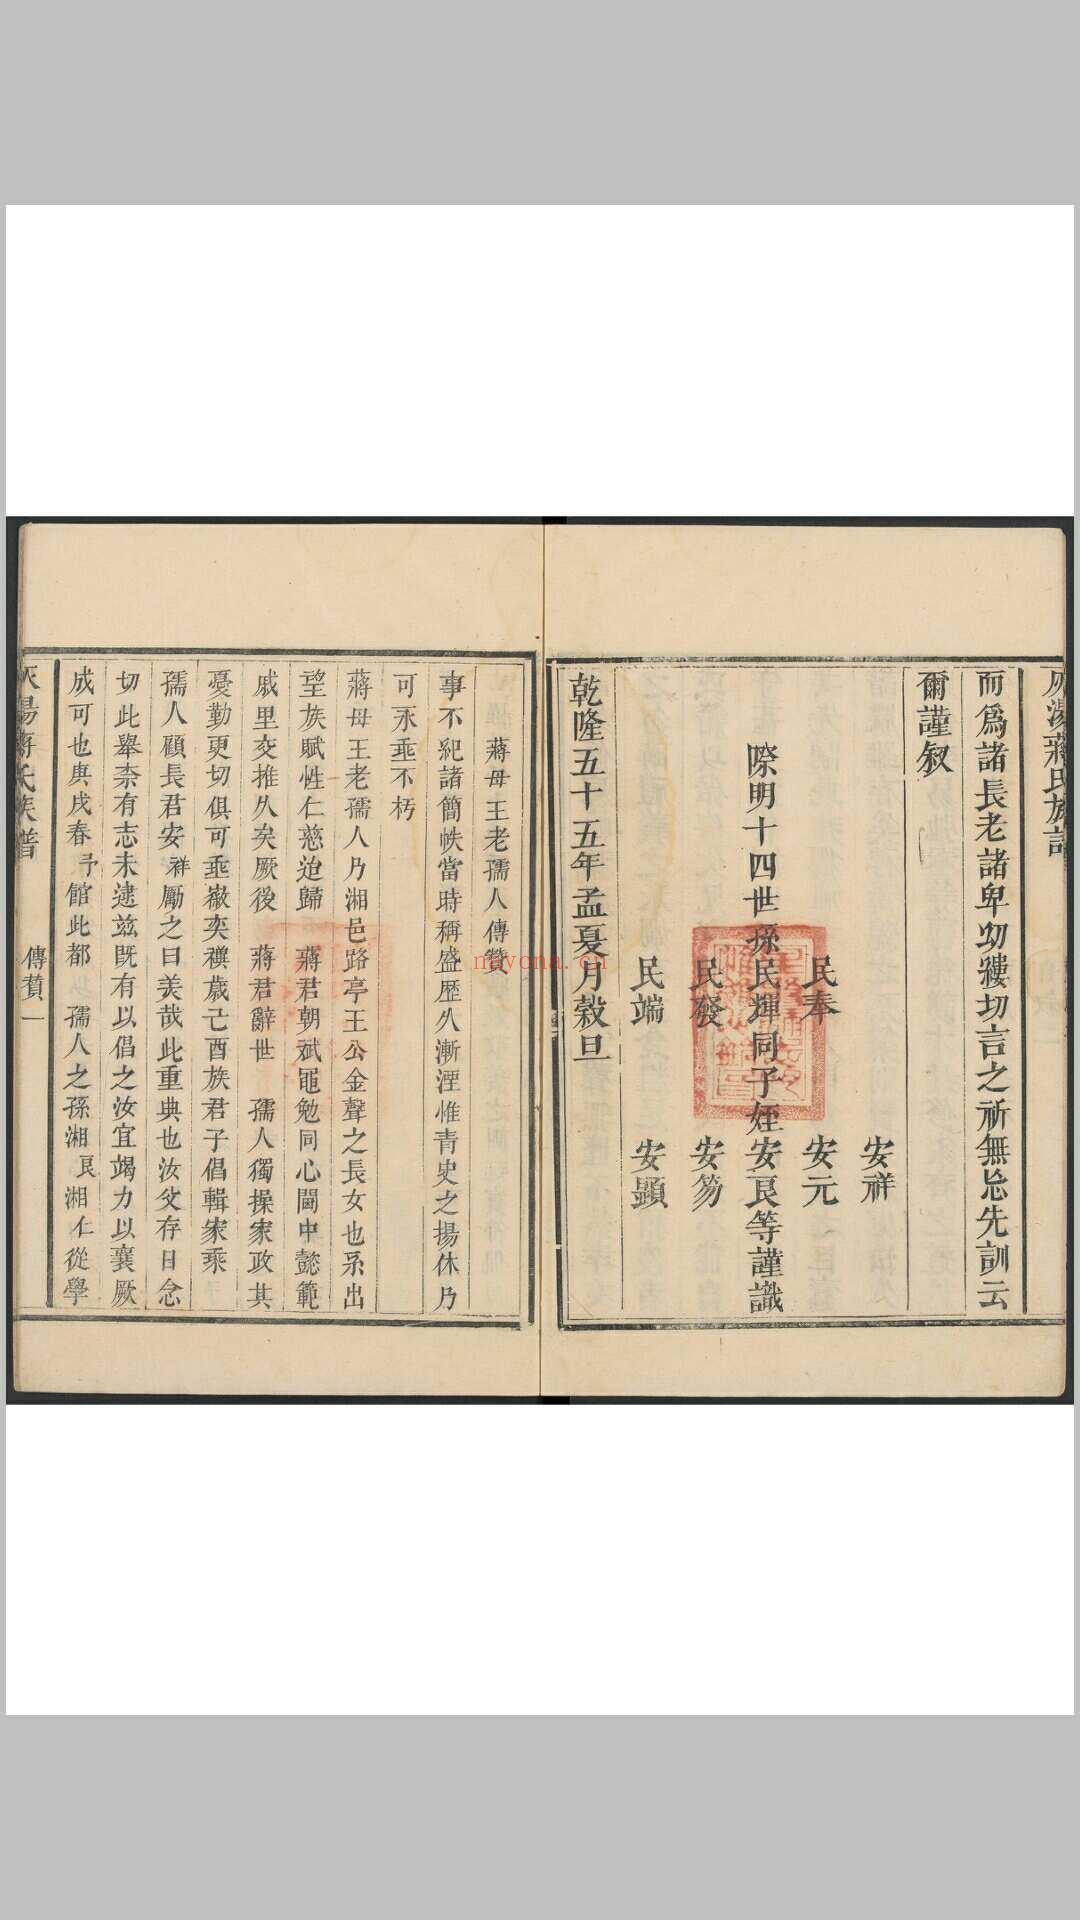 灰湯蔣氏族譜
而爲諸長老諸卑㓜縷切言之祈無忘先訓云
爾謹叙
安祥
民奉 安元
際明十四世孫民輝同子姪安良等謹識
民發 安笏
民端 安顕
乾隆五十五年孟夏月榖旦
蔣母王老孺人傳贊
事不紀諸簡帙當時稱盛歷久漸湮惟青史之揚休乃
可永埀不朽
蔣母王老孺人乃湘邑路亭王公金聲之長女也系出
望族賦性仁慈迨歸 蔣君朝斌黽勉同心閫中懿範
戚里交推久矣厥後 蔣君辭世 孺人獨操家政其
憂勤更切俱可埀徽奕禩歲己酉族君子倡輯家乘
孺人顧長君安祥勵之曰美哉此重典也汝父存日念
切此舉柰有志未逮兹既有以倡之汝宜竭力以襄厥
成可也庚戌春予館此都 孺人之孫湘良湘仁從學
灰湯蔣氏族譜 傳贊 一
nayona.cn